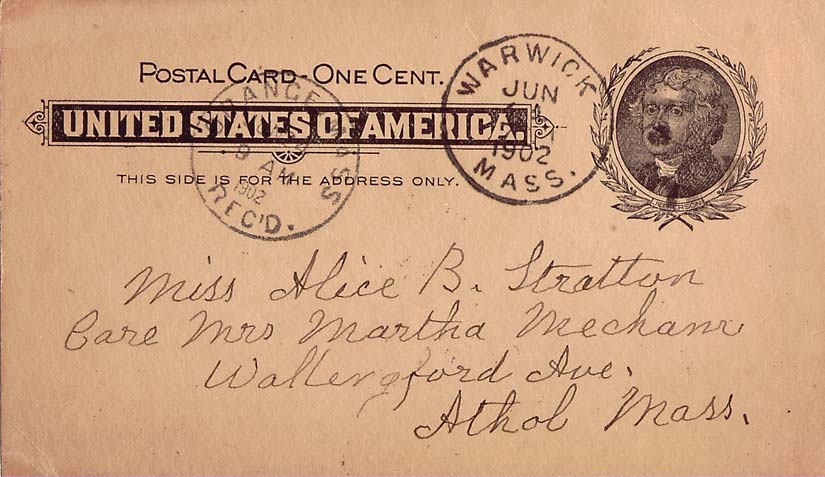 POSTAL CARD - ONE CENT.
UNITED STATES OF AMERICA.
THIS SIDE IS FOR THE ADDRESS ONLY.
ORANGE MASS
9 AM
1902
REC'D.
WARWICK
JUN
1902
MASS.
Miss Alice B. Stratton
Care Mrs Martha Mechanr
Wallengford Ave.
Athol Mass.